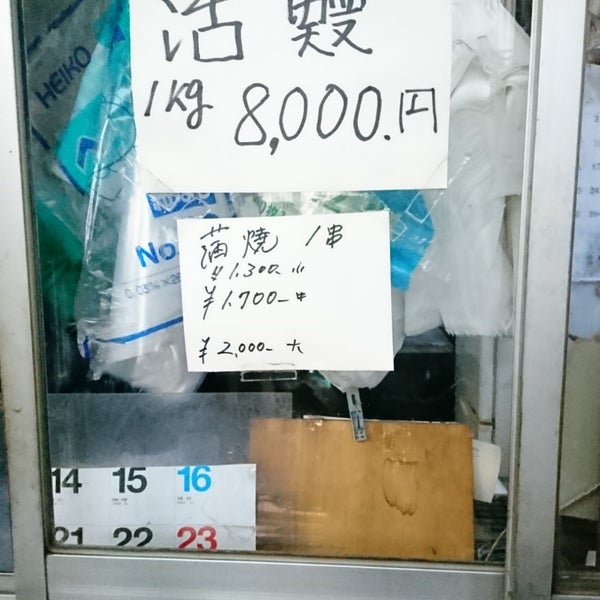 活鰻
1kg 8,000.円
HEIKO
No.
0.03%
蒲焼 1串
¥1,300 小
¥1,700- 中
¥2,000- 大
14 15 16
21 22 23